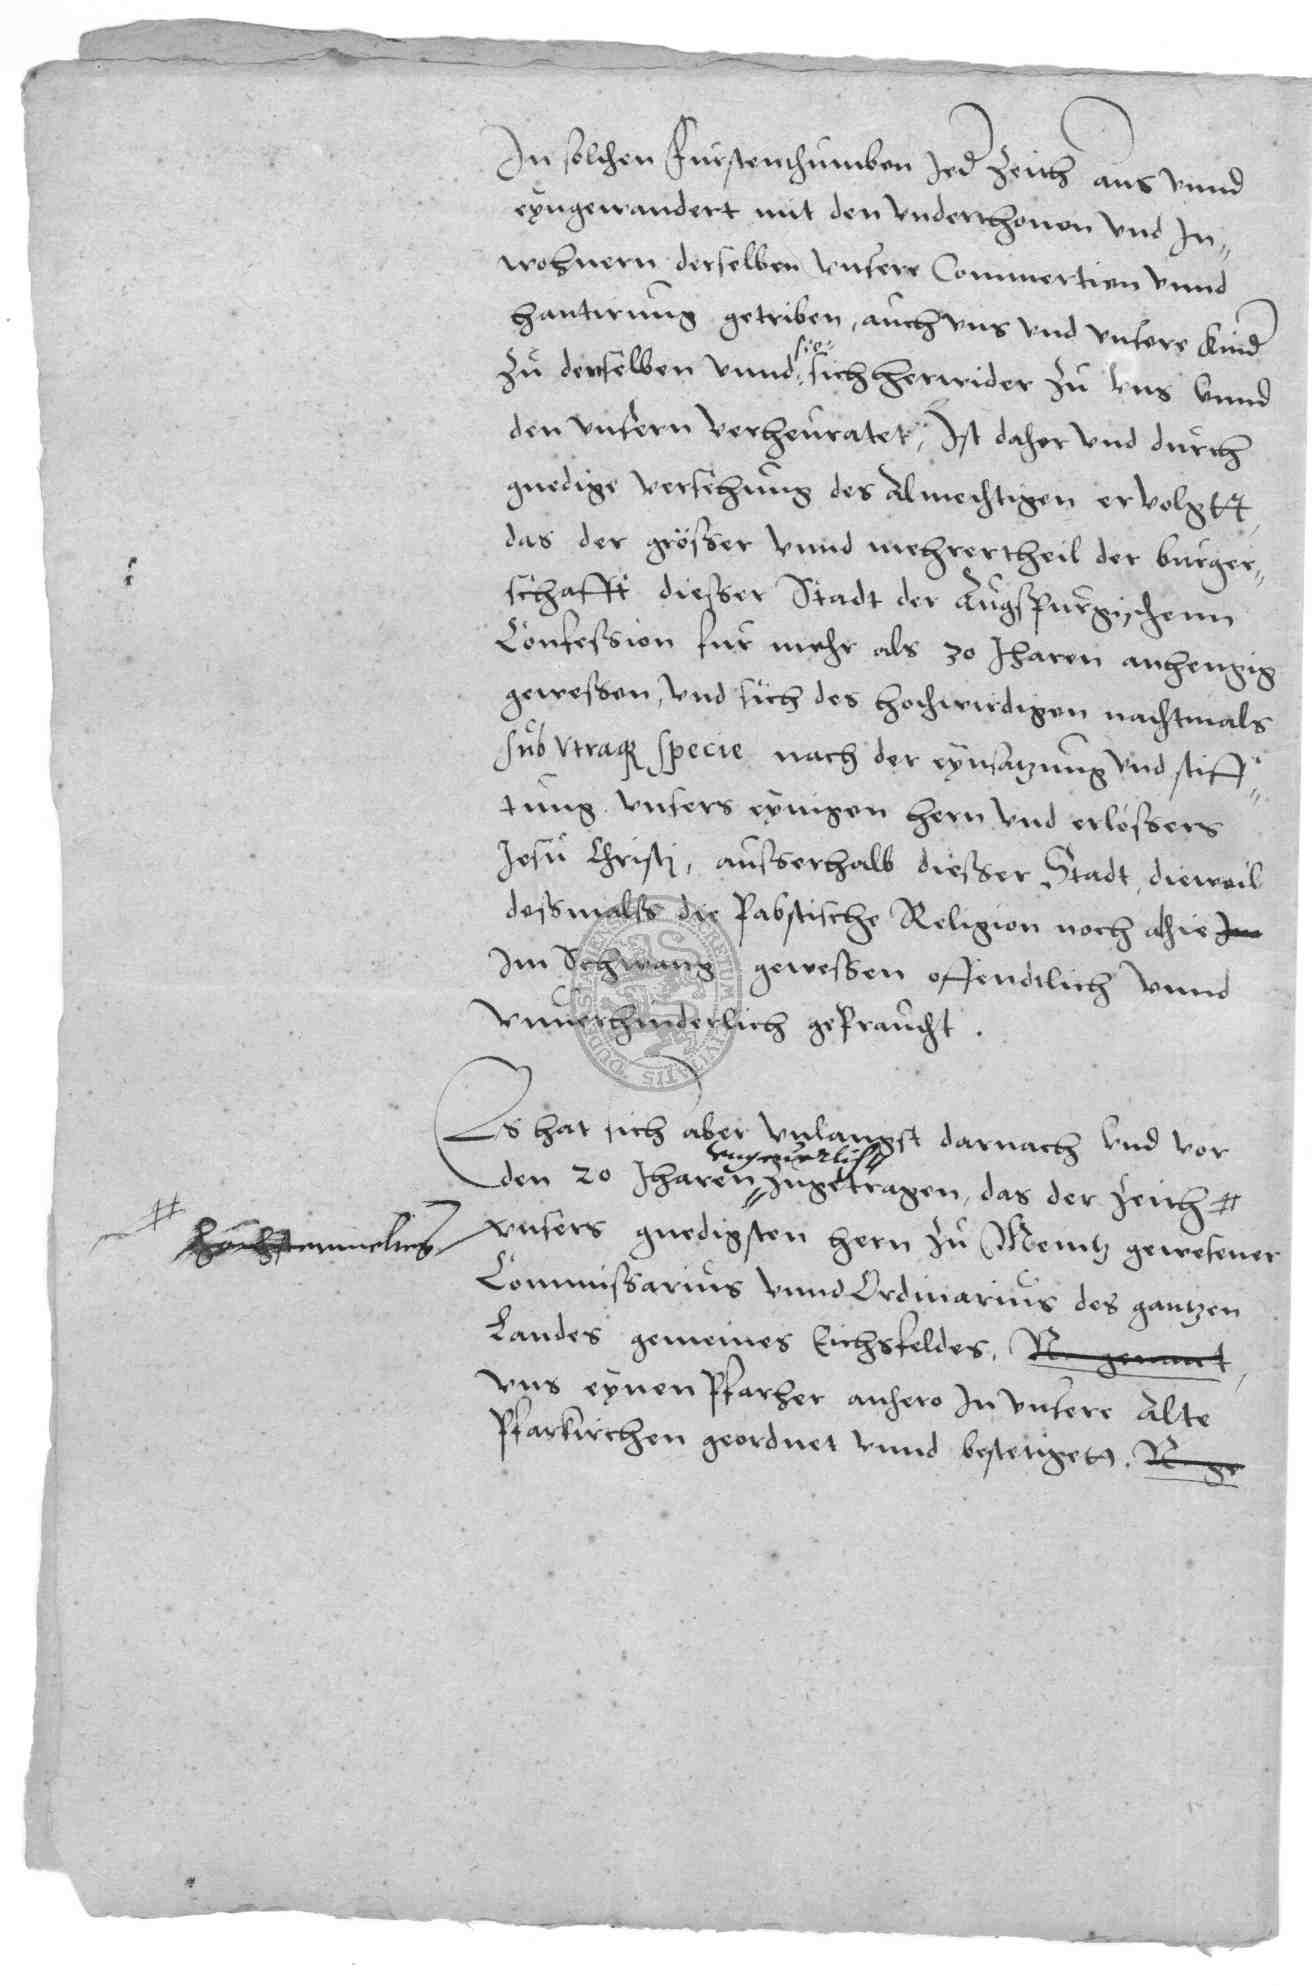 In solchen Furstenthumben Jed Zeith aus vnnd
eÿngewandert mit den vnderthonen vnd In„
wohnern derselben vnsere Commertien vnnd
hantirung getriben, auch vns vnd vnsere Kind
zu derselben vnnd sie sich herwider zu vns vnnd
den vnsern verheuratet, Ist daher vnd durch
gnedige versehung des Almechtigen ervolgtt,
das der grösser vnnd mehrertheil der burger„
schafft diesser Stadt der Augspurgischenn
Confession fur mehr als 30 Jharen anhengig
gewessen, vnd sich des hochwirdigen nachtmals
sub vtraq specie nach der eÿnsatzung vnd stiff„
tung vnsers eÿnigen hern vnd erlössers
Jesu Christj, ausserhalb diesser Stadt, dieweil
dessmalss die Pabstische Religion noch alhie Im
Im Schwang gewessen offendtlich vnnd
vnuerhinderlich gepraucht.
Es hat sich aber vnlangst darnach vnd vor
vngeuerlich
den 20 Jharen zugetragen, das der Zeith #
#
vnsers gnedigsten hern zu Mentz gewesener
Commissarius vnnd Ordinarius des gantzen
Landes gemeines Eichsfeldes, N. genant,
vns eÿnen Pfarher anhero In vnsere Alte
Pfarkirchen geordnet vnnd bestetigett. N. ge